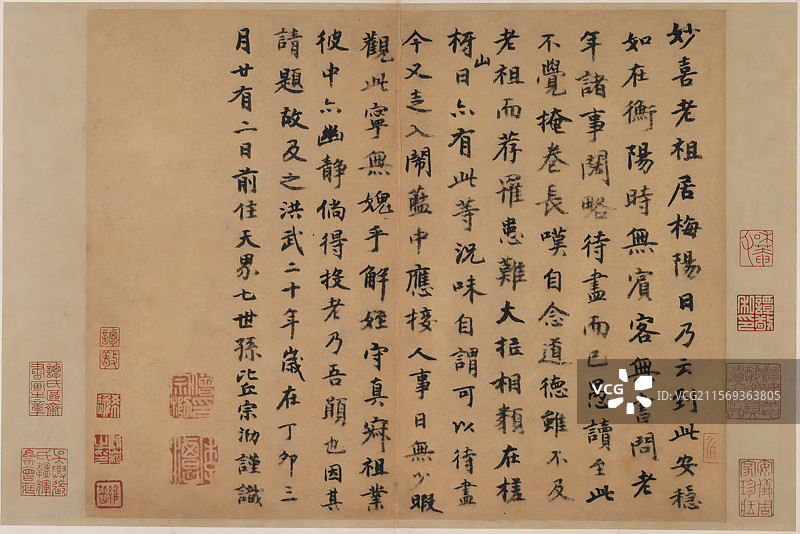 妙喜老祖居梅陽日乃云到此安穩
如在衡陽時無賓客無書問老
年諸事闊略待盡而已恐讀至此
不覺掩卷長嘆自念道德雖不及
老祖而荐罹患難大抵相類在槎
山
枒日亦有此等況味自謂可以待盡
今又走入鬧藍中應接人事日無少暇
觀此寧無媿乎解姪守真寂祖業
彼中亦幽靜倘得投老乃吾願也因其
請題故及之洪武二十年歲在丁卯三
月廿有二日前住天界七世孫比丘宗泐謹識
VCG
VCG211569363805